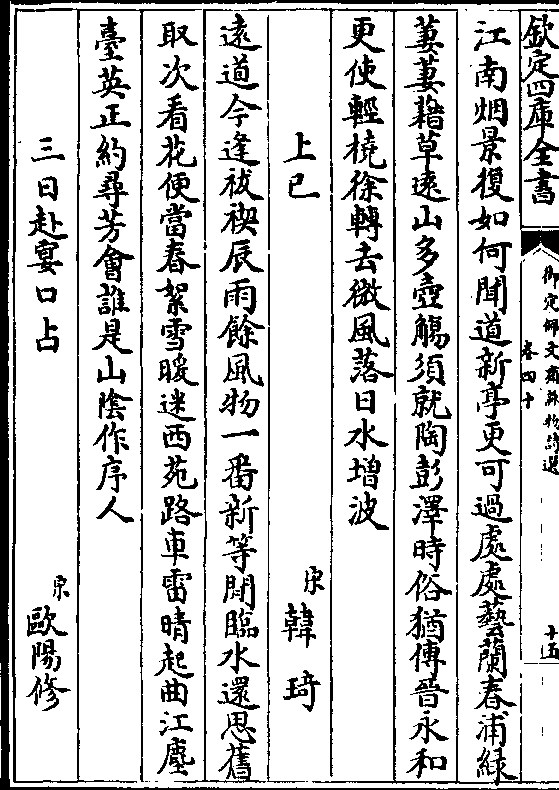 欽定四庫全書
御定佩文齋詠物詩選
卷四十
十五
江南烟景復如何聞道新亭更可過處處藝蘭春浦綠
萋萋藉草遠山多壺觴須就陶彭澤時俗猶傳晉永和
更使輕橈徐轉去微風落日水增波
上巳
宋韓琦
遠道今逢祓禊辰雨餘風物一番新等閒臨水還思舊
取次看花便當春絮雪暖迷西苑路車雷晴起曲江塵
臺英正約尋芳會誰是山陰作序人
三日赴宴口占
宋歐陽修